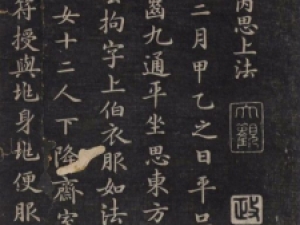 內思上法
二月甲乙之日平
齒九通平坐思東方
拘字上伯衣服如法
女十二人下降齋室
符授與兆身兆便服
大觀
政